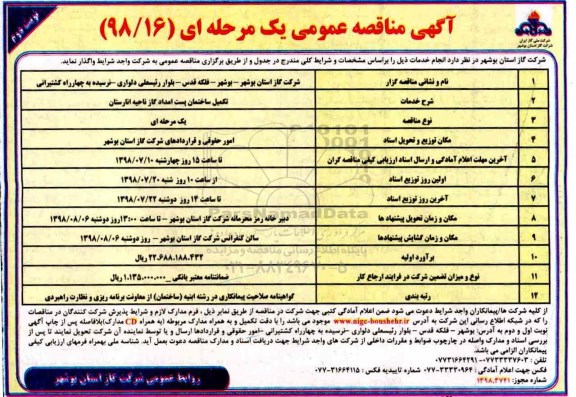 نوبت دوم
آگهی مناقصه عمومی یک مرحله ای (۹۸/۱۶)
شرکت ملی گاز ایران
شرکت گاز استان بوشهر
شرکت گاز استان بوشهر در نظر دارد انجام خدمات ذیل را براساس مشخصات و شرایط کلی مندرج در جدول و از طریق برگزاری مناقصه عمومی به شرکت واجد شرایط واگذار نماید.
۱ نام و نشانی مناقصه گزار شرکت گاز استان بوشهر – بوشهر – فلکه قدس – بلوار رئیسعلی دلواری –نرسیده به چهارراه کشتیرانی
۲ شرح خدمات تکمیل ساختمان پست امداد گاز ناحیه انارستان
۳ نوع مناقصه یک مرحله ای
۴ مکان توزیع و تحویل اسناد امور حقوقی و قراردادهای شرکت گاز استان بوشهر
۵ آخرین مهلت اعلام آمادگی و ارسال اسناد ارزیابی کیفی مناقصه گران تا ساعت ۱۵ روز چهارشنبه ۱۳۹۸/۰۷/۱۰
۶ اولین روز توزیع اسناد از ساعت ۱۰ روز شنبه ۱۳۹۸/۰۷/۲۰
۷ آخرین روز توزیع اسناد تا ساعت ۱۴ روز دوشنبه ۱۳۹۸/۰۷/۲۲
۸ مکان و زمان تحویل پیشنهاد ها دبیر خانه رمز محرمانه شرکت گاز استان بوشهر – تا ساعت ۱۳:۰۰ روز دوشنبه ۱۳۹۸/۰۸/۰۶
۹ مکان و زمان گشایش پیشنهادها سالن کنفرانس شرکت گاز استان بوشهر – روز دوشنبه ۱۳۹۸/۰۸/۰۶
۱۰ برآورد اولیه ۲۲.۶۸۸.۱۸۸.۴۳۲ ریال
۱۱ نوع و میزان تضمین شرکت در فرایند ارجاع کار ضمانتنامه معتبر بانکی _ ۱.۱۳۵.۰۰۰.۰۰۰ ریال
۱۲ رتبه بندی گواهینامه صلاحیت پیمانکاری در رشته ابنیه (ساختمان) از معاونت برنامه ریزی و نظارت راهبردی
از کلیه شرکت ها/پیمانکاران واجد شرایط دعوت می شود ضمن اعلام آمادگی کتبی جهت شرکت در مناقصه از طریق نمابر ذیل ، فرم مدارک لازم و شرایط پذیرش شرکت کنندگان در مناقصات
را که در شبکه اطلاع رسانی این شرکت به آدرس www.nigc-boushehr.ir موجود می باشد را با دقت تکمیل و به همراه مدارک مربوطه (به همراه CD مدارک)بلافاصله پس از چاپ آگهی
نوبت اول و دوم به آدرس: بوشهر – فلکه قدس – بلوار رئیسعلی دلواری –نرسیده به چهارراه کشتیرانی –امور حقوقی و قراردادها ارسال و یا توسط نماینده آن شرکت تحویل نمایند تا پس از
بررسی اسناد و مدارک واصله در چارچوب ضوابط و مقررات داخلی از شرکت های واجد شرایط جهت دریافت اسناد و مدارک مناقصه دعوت بعمل آید. شناسه ملی بهمراه فرمهای ارزیابی کیفی
پیمانکاران الزامی می باشد.
تلفن : ۰۷۷۳۳۳۳۷۶۰۳-۰۷۷۳۱۶۶۴۲۹۱
فکس جهت اعلام آمادگی : ۳۳۳۳۰۹۶۴-۰۷۷ شماره تاییدیه فکس : ۳۱۶۶۴۱۱۵-۰۷۷
شماره مجوز: ۱۳۹۸.۳۷۴۱
روابط عمومی شرکت گاز استان بوشهر
ParsNamadData
پایگاه اطلاع رسانی مناقصه و مزایده
۰۲۱-۸۸۳۴۹۶۷۰-۵